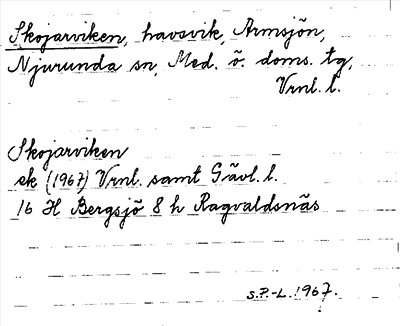 Skojarviken, havsvik, Armsjön,
Njurunda sn, Med. ö. doms. tg,
Vrnl. l.
Skojarviken
ek (1967) Vrnl. samt Gävl. l.
16 H Bergsjö 8 h Ragvaldsnäs
S.P.-L. 1967.